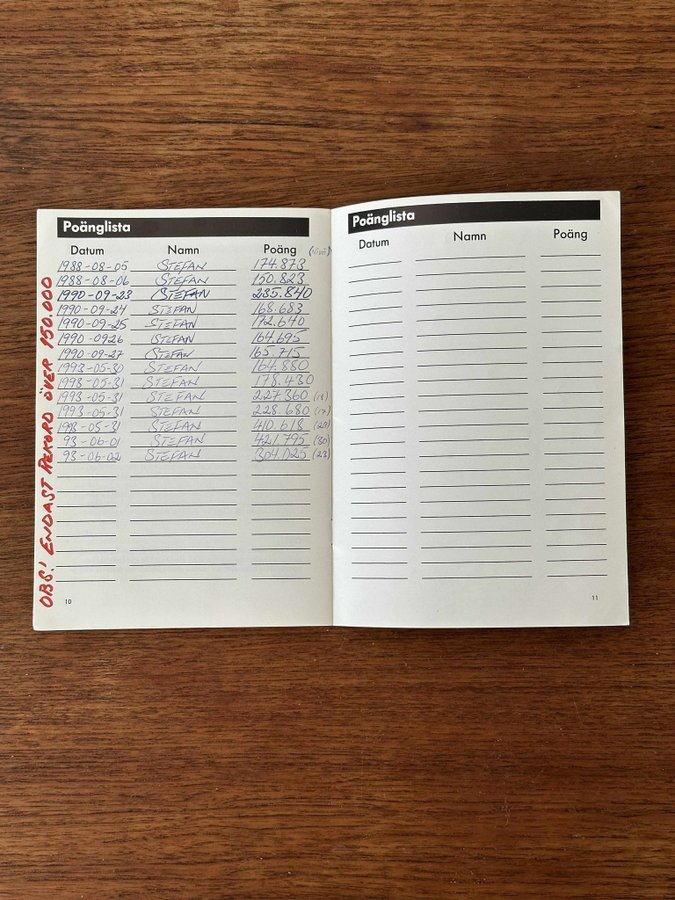 Poänglista
Datum Namn Poäng (Nivå)
1988-08-05 STEFAN 174.873
1988-08-06 STEFAN 150.823
1990-09-23 STEFAN 235.840
1990-09-24 STEFAN 168.683
1990-09-25 STEFAN 172.640
1990-0926 STEFAN 164.695
1990-09-27 STEFAN 165.715
1993-05-30 STEFAN 164.880
1993-05-31 STEFAN 178.430
1993-05-31 STEFAN 227.360 (18)
1993-05-31 STEFAN 228.680 (17)
1993-05-31 STEFAN 410.618 (29)
93-06-01 STEFAN 421.795 (30)
93-06-02 STEFAN 304.025 (23)
OBS! ENDAST REKORD ÖVER 150.000
10
Poänglista
Datum Namn Poäng
11